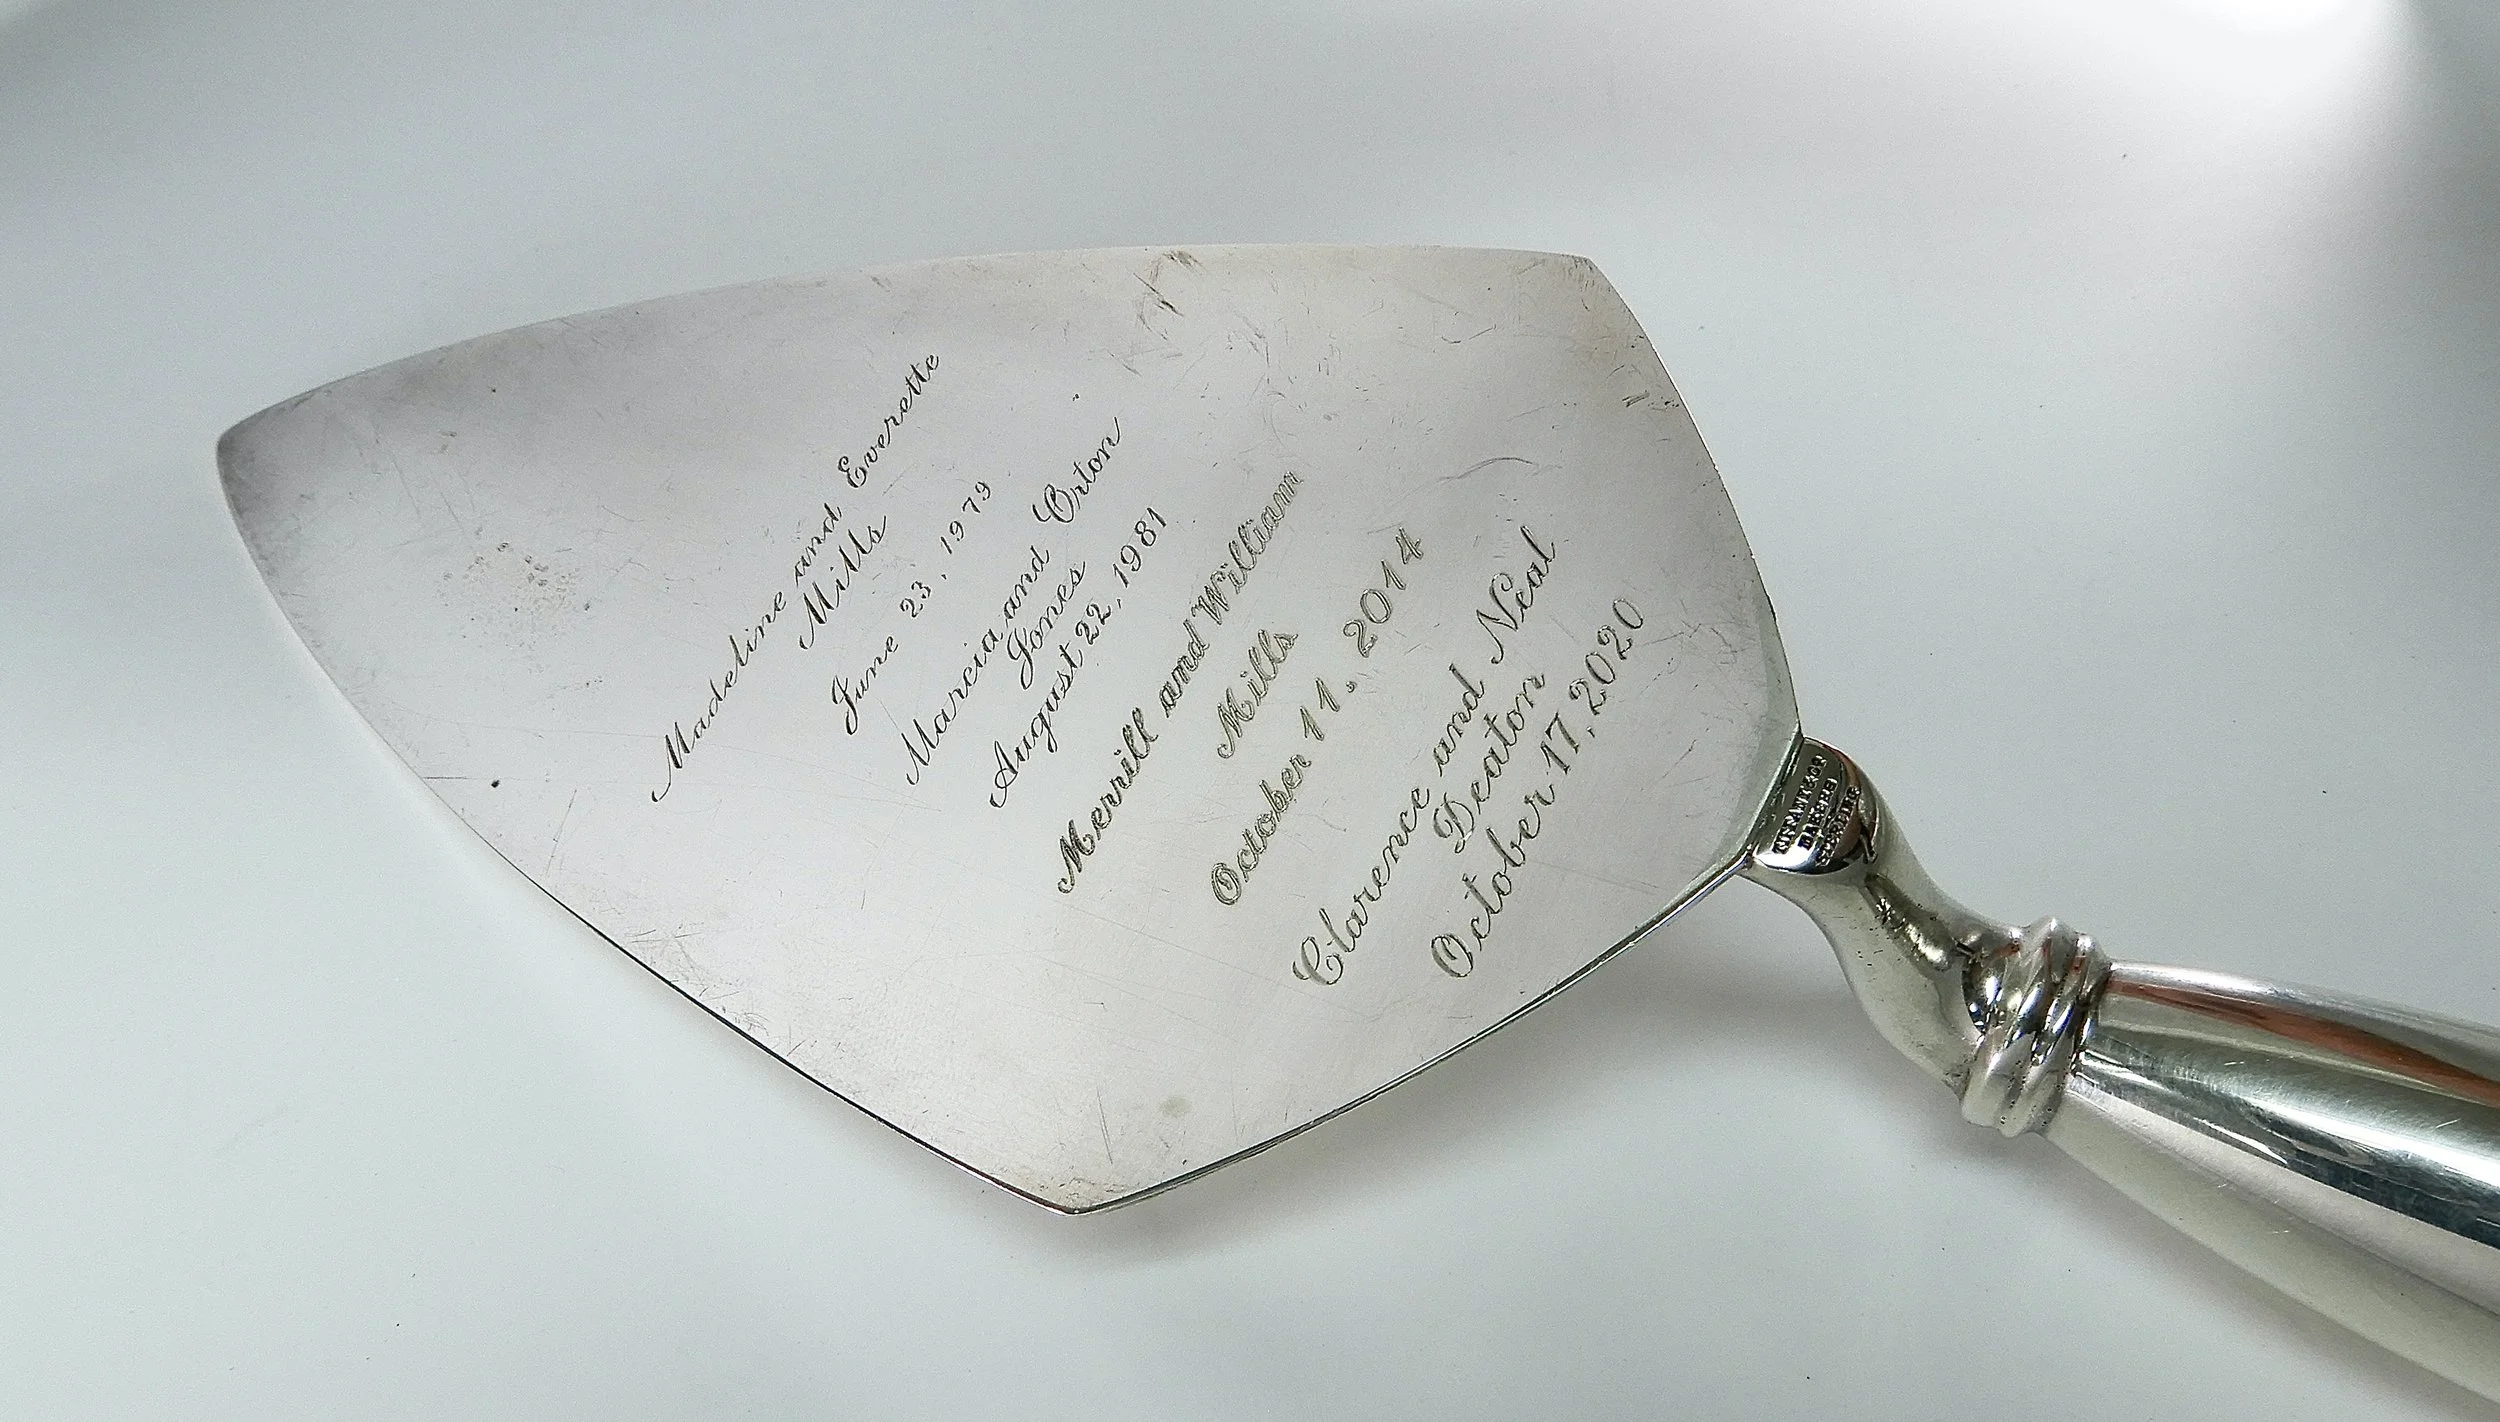 Madeline and Everette
Mills
June 23, 1979
Marcia and Orton
Jones
August 22, 1981
Merrill and William
Mills
October 11. 2014
Clarence and Neal
Deaton
October 17, 2020
STERLING